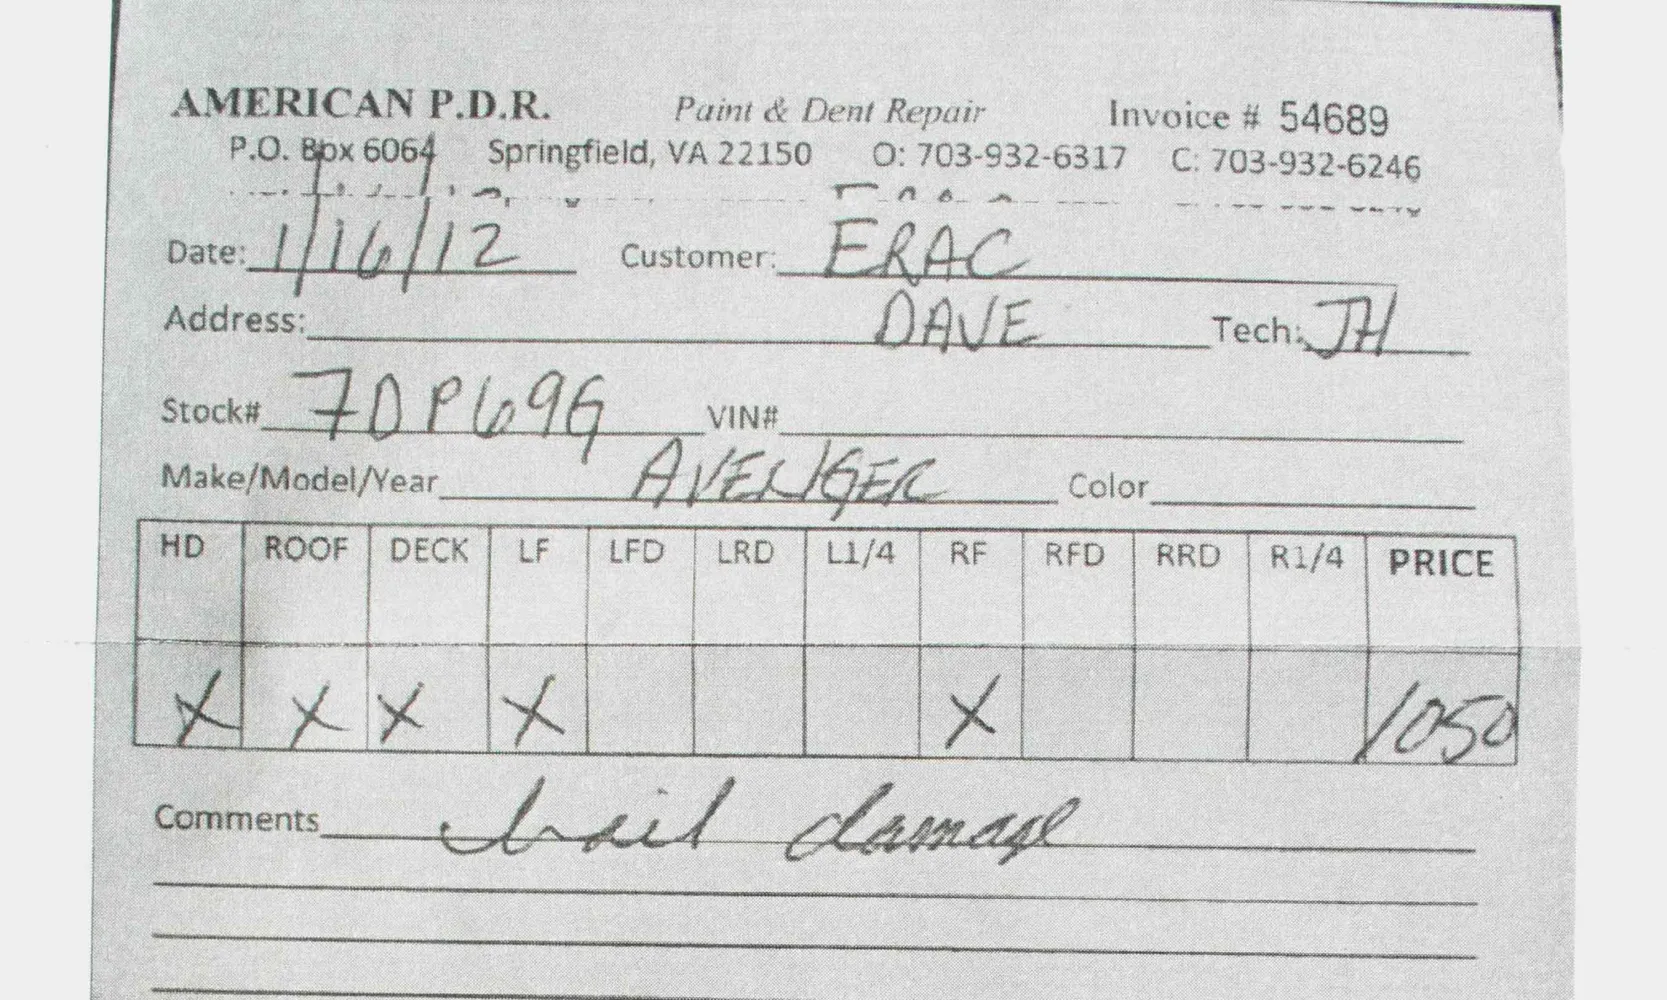 AMERICAN P.D.R. Paint & Dent Repair Invoice # 54689
P.O. Box 6064 Springfield, VA 22150 O: 703-932-6317 C: 703-932-6246
Date: 1/16/12 Customer: ERAC
Address: DAVE Tech: JH
Stock# 7DP699 VIN#
Make/Model/Year AVENGER Color
HD ROOF DECK LF LFD LRD L1/4 RF RFD RRD R1/4 PRICE
X X X X X 1050
Comments hail damage